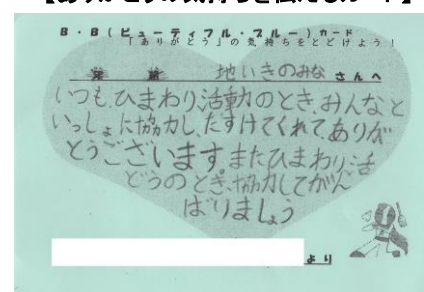 B・B(ビューティフル・ブルー)カード
「ありがとう」の気持ちをとどけよう!
地いきのみな さんへ
いつも、ひまわり活動のとき、みんなと
いっしょに協力し、たすけてくれてありが
とうございます またひまわり活
どうのとき、協力してがん
ばりましょう
より